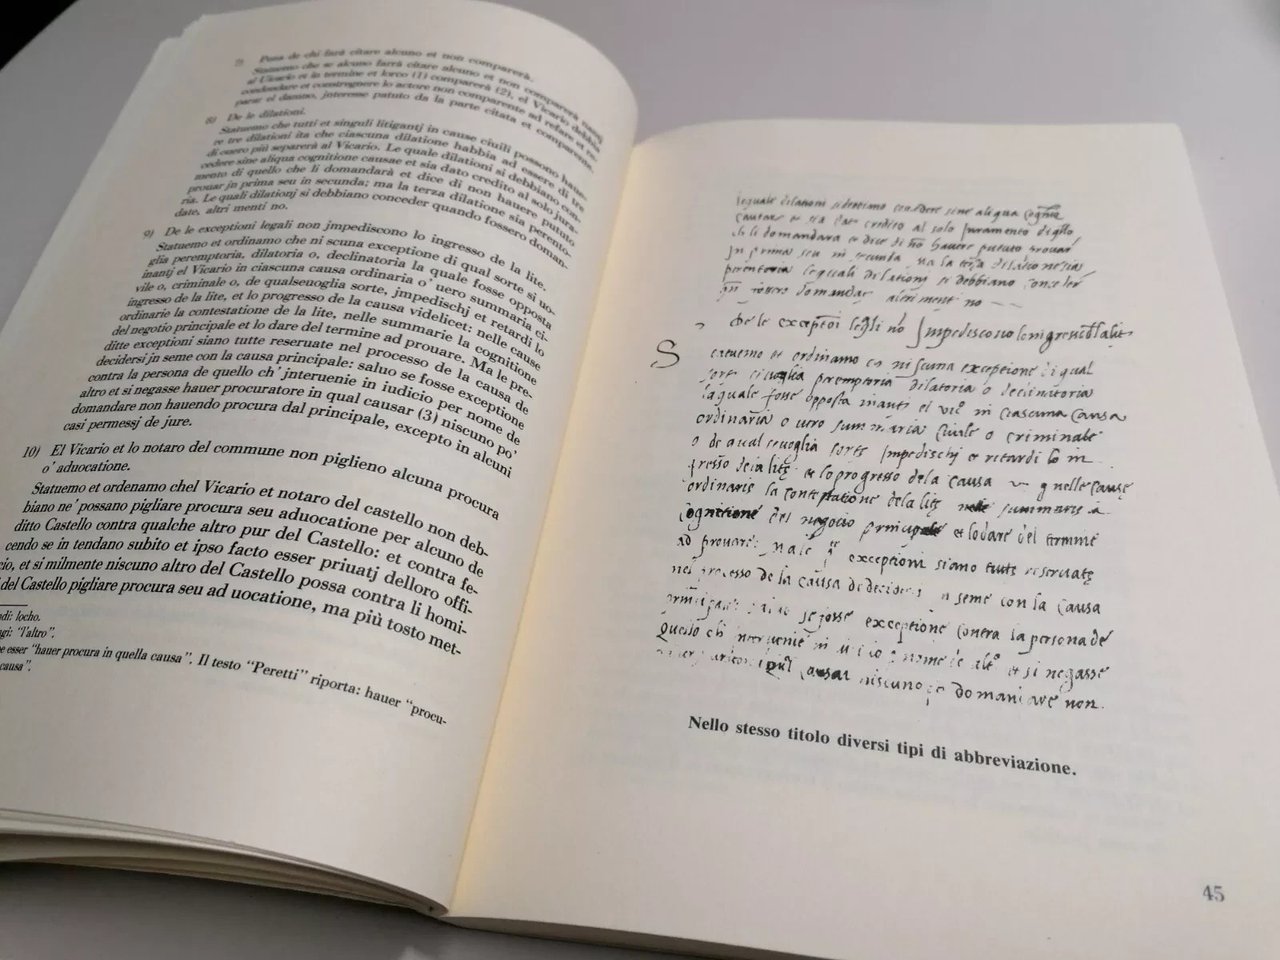 7) Pena de chi farà citare alcuno et non comparerà.
Statuemo che se alcuno farrà citare alcuno et non comparerà nanti
al Vicario et in termine et lorco (1) comparerà (2), el Vicario debbia
condendare et constregnere lo actore non comparente ad refare et re-
parar el danno, jnteresse patuto da la parte citata et comparente.
8) De le dilationi.
Statuemo che tutti et singuli litigantj in cause ciuili possono hauer
re tre dilationi ita che ciascuna dilatione habbia ad essere di tre
di ouero più separerà al Vicario. Le quale dilationi si debbiano con-
cedere sine aliqua cognitione causae et sia dato credito al solo jura-
mento di quello che li domandarà et dice di non hauere pututo
prouar jn prima seu in secunda; ma la terza dilatione sia perento-
ria. Le quali dilationj si debbiano conceder quando fossero doman-
date, altri menti no.
9) De le exceptioni legali non jmpediscono lo ingresso de la lite.
Statuemo et ordinamo che ni scuna exceptione di qual sorte si uo-
glia peremptoria, dilatoria o, declinatoria la quale fosse opposta
inantj el Vicario in ciascuna causa ordinaria o' uero summaria ci-
vile o, criminale o, de qualseuoglia sorte, jmpedischj et retardi lo
ingresso de la lite, et lo progresso de la causa videlicet: nelle cause
ordinarie la contestatione de la lite, nelle summarie la cognitione
del negotio principale et lo dare del termine ad prouare. Ma le pre-
ditte exceptioni siano tutte reseruate nel processo de la causa de
decidersi jn seme con la causa principale: saluo se fosse exceptione
contra la persona de quello ch' interuenie in iudicio per nome de
altro et si negasse hauer procuratore in qual causar (3) niscuno po'
domandare non hauendo procura dal principale, excepto in alcuni
casi permessj de jure.
10) El Vicario et lo notaro del commune non piglieno alcuna procura
o' aduocatione.
Statuemo et ordenamo chel Vicario et notaro del castello non deb-
biano ne' possano pigliare procura seu aduocatione per alcuno de
ditto Castello contra qualche altro pur del Castello: et contra fe-
cendo se in tendano subito et ipso facto esser priuatj delloro offi-
cio, et si milmente niscuno altro del Castello possa contra li homi-
del Castello pigliare procura seu ad uocatione, ma più tosto met-
locho.
"l'altro".
esser "hauer procura in quella causa". Il testo "Peretti" riporta: hauer "procu-
causa".
lequale dilationi si debiano concedere sine aliqua
causae et sia dato credito al solo juramento di
che li domandara et dice di nõ havere pututo provar
jn prima seu in secunda ma la terza
perentoria lequali dilationi se debbiano conceder
domandar altrimenti no
De le legali nõ Impediscono
Statuemo et ordinamo che niscuna exceptione di qual
sorte peremptoria dilatoria o declinatoria
laquale fosse opposta inanti el in ciascuna causa
ordinaria o uero summaria civile o criminale
o de qual sevoglia sorte Impedischj et retardi lo in
gresso dela et lo progresso dela causa nelle cause
ordinarie la contestatione dela summarie la
cognitione del negocio principale et lo dare del termine
ad provare: Ma le exceptioni siano tutte reservate
nel processo de la causa de decidersi in seme con la causa
se fosse exceptione contra la persona de
quello ch' intervenie in nome de et si negasse
causar niscuno domandare non
Nello stesso titolo diversi tipi di abbreviazione.
45